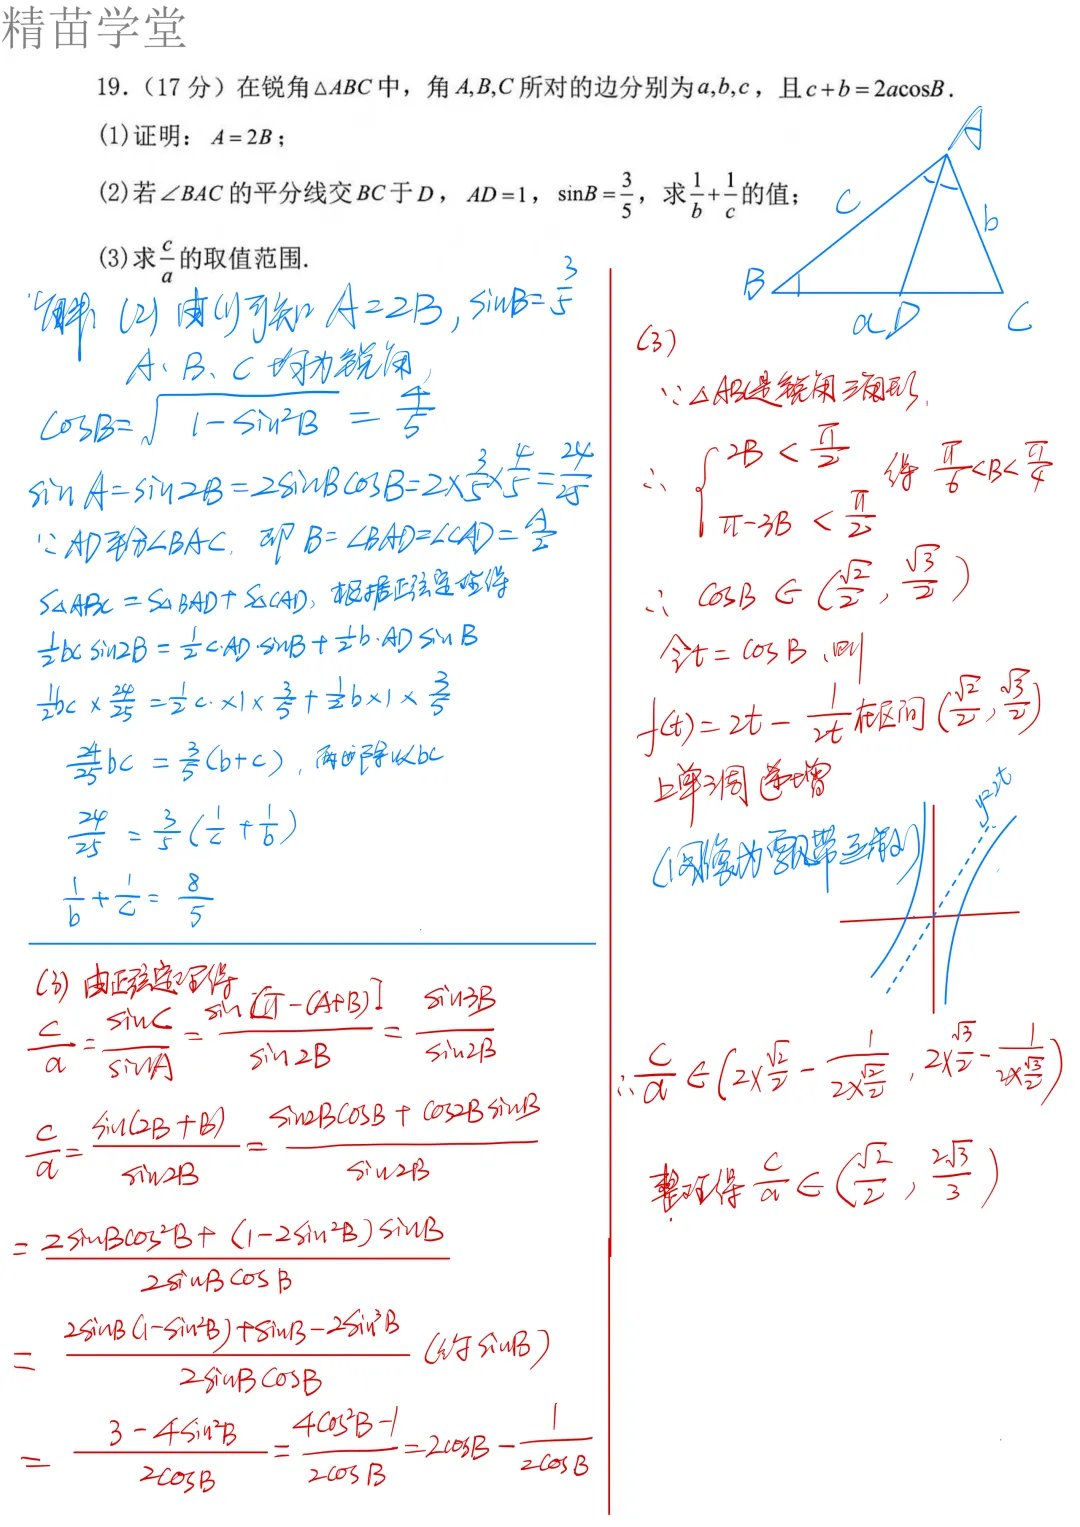 精苗学堂
19.（17 分）在锐角△ABC 中，角 A,B,C 所对的边分别为 a,b,c，且 c+b=2acosB.
(1)证明：A=2B；
(2)若∠BAC 的平分线交 BC 于 D，AD=1，sinB=3/5，求 1/b+1/c 的值；
(3)求 c/a 的取值范围.
A
c
b
B
a D
C
解: (2) 由(1)可知 A=2B, sinB=3/5
A、B、C 均为锐角,
cosB=√(1-sin²B) = 4/5
sinA=sin2B=2sinBcosB=2×3/5×4/5=24/25
∵AD平分∠BAC, 即 B=∠BAD=∠CAD=A/2
S△ABC=S△BAD+S△CAD, 根据正弦定理得
1/2bc sin2B = 1/2c·AD·sinB+1/2b·AD sinB
1/2bc × 24/25 = 1/2c·×1×3/5+1/2b×1×3/5
24/25bc = 3/5(b+c), 两边除以bc
24/25 = 3/5(1/c+1/b)
1/b+1/c= 8/5
(3) 由正弦定理得
c/a = sinC/sinA = sin[π-(A+B)]/sin2B = sin3B/sin2B
c/a = sin(2B+B)/sin2B = (sin2BcosB+cos2BsinB)/sin2B
= (2sinBcos²B+(1-2sin²B)sinB)/2sinBcosB
= (2sinB(1-sin²B)+sinB-2sin³B)/2sinBcosB (约sinB)
= (3-4sin²B)/2cosB = (4cos²B-1)/2cosB = 2cosB - 1/2cosB
(3)
∵△ABC是锐角三角形,
∴ { 2B < π/2
π-3B < π/2
得 π/6<B<π/4
∴ cosB∈(√2/2, √3/2)
令t=cosB, 则
f(t)=2t - 1/2t 在区间(√2/2, √3/2)
上单调递增
(图像为飘带函数)
y=2t
∴ c/a∈(2×√2/2 - 1/(2×√2/2), 2×√3/2 - 1/(2×√3/2))
整理得 c/a∈(√2/2, 2√3/3)